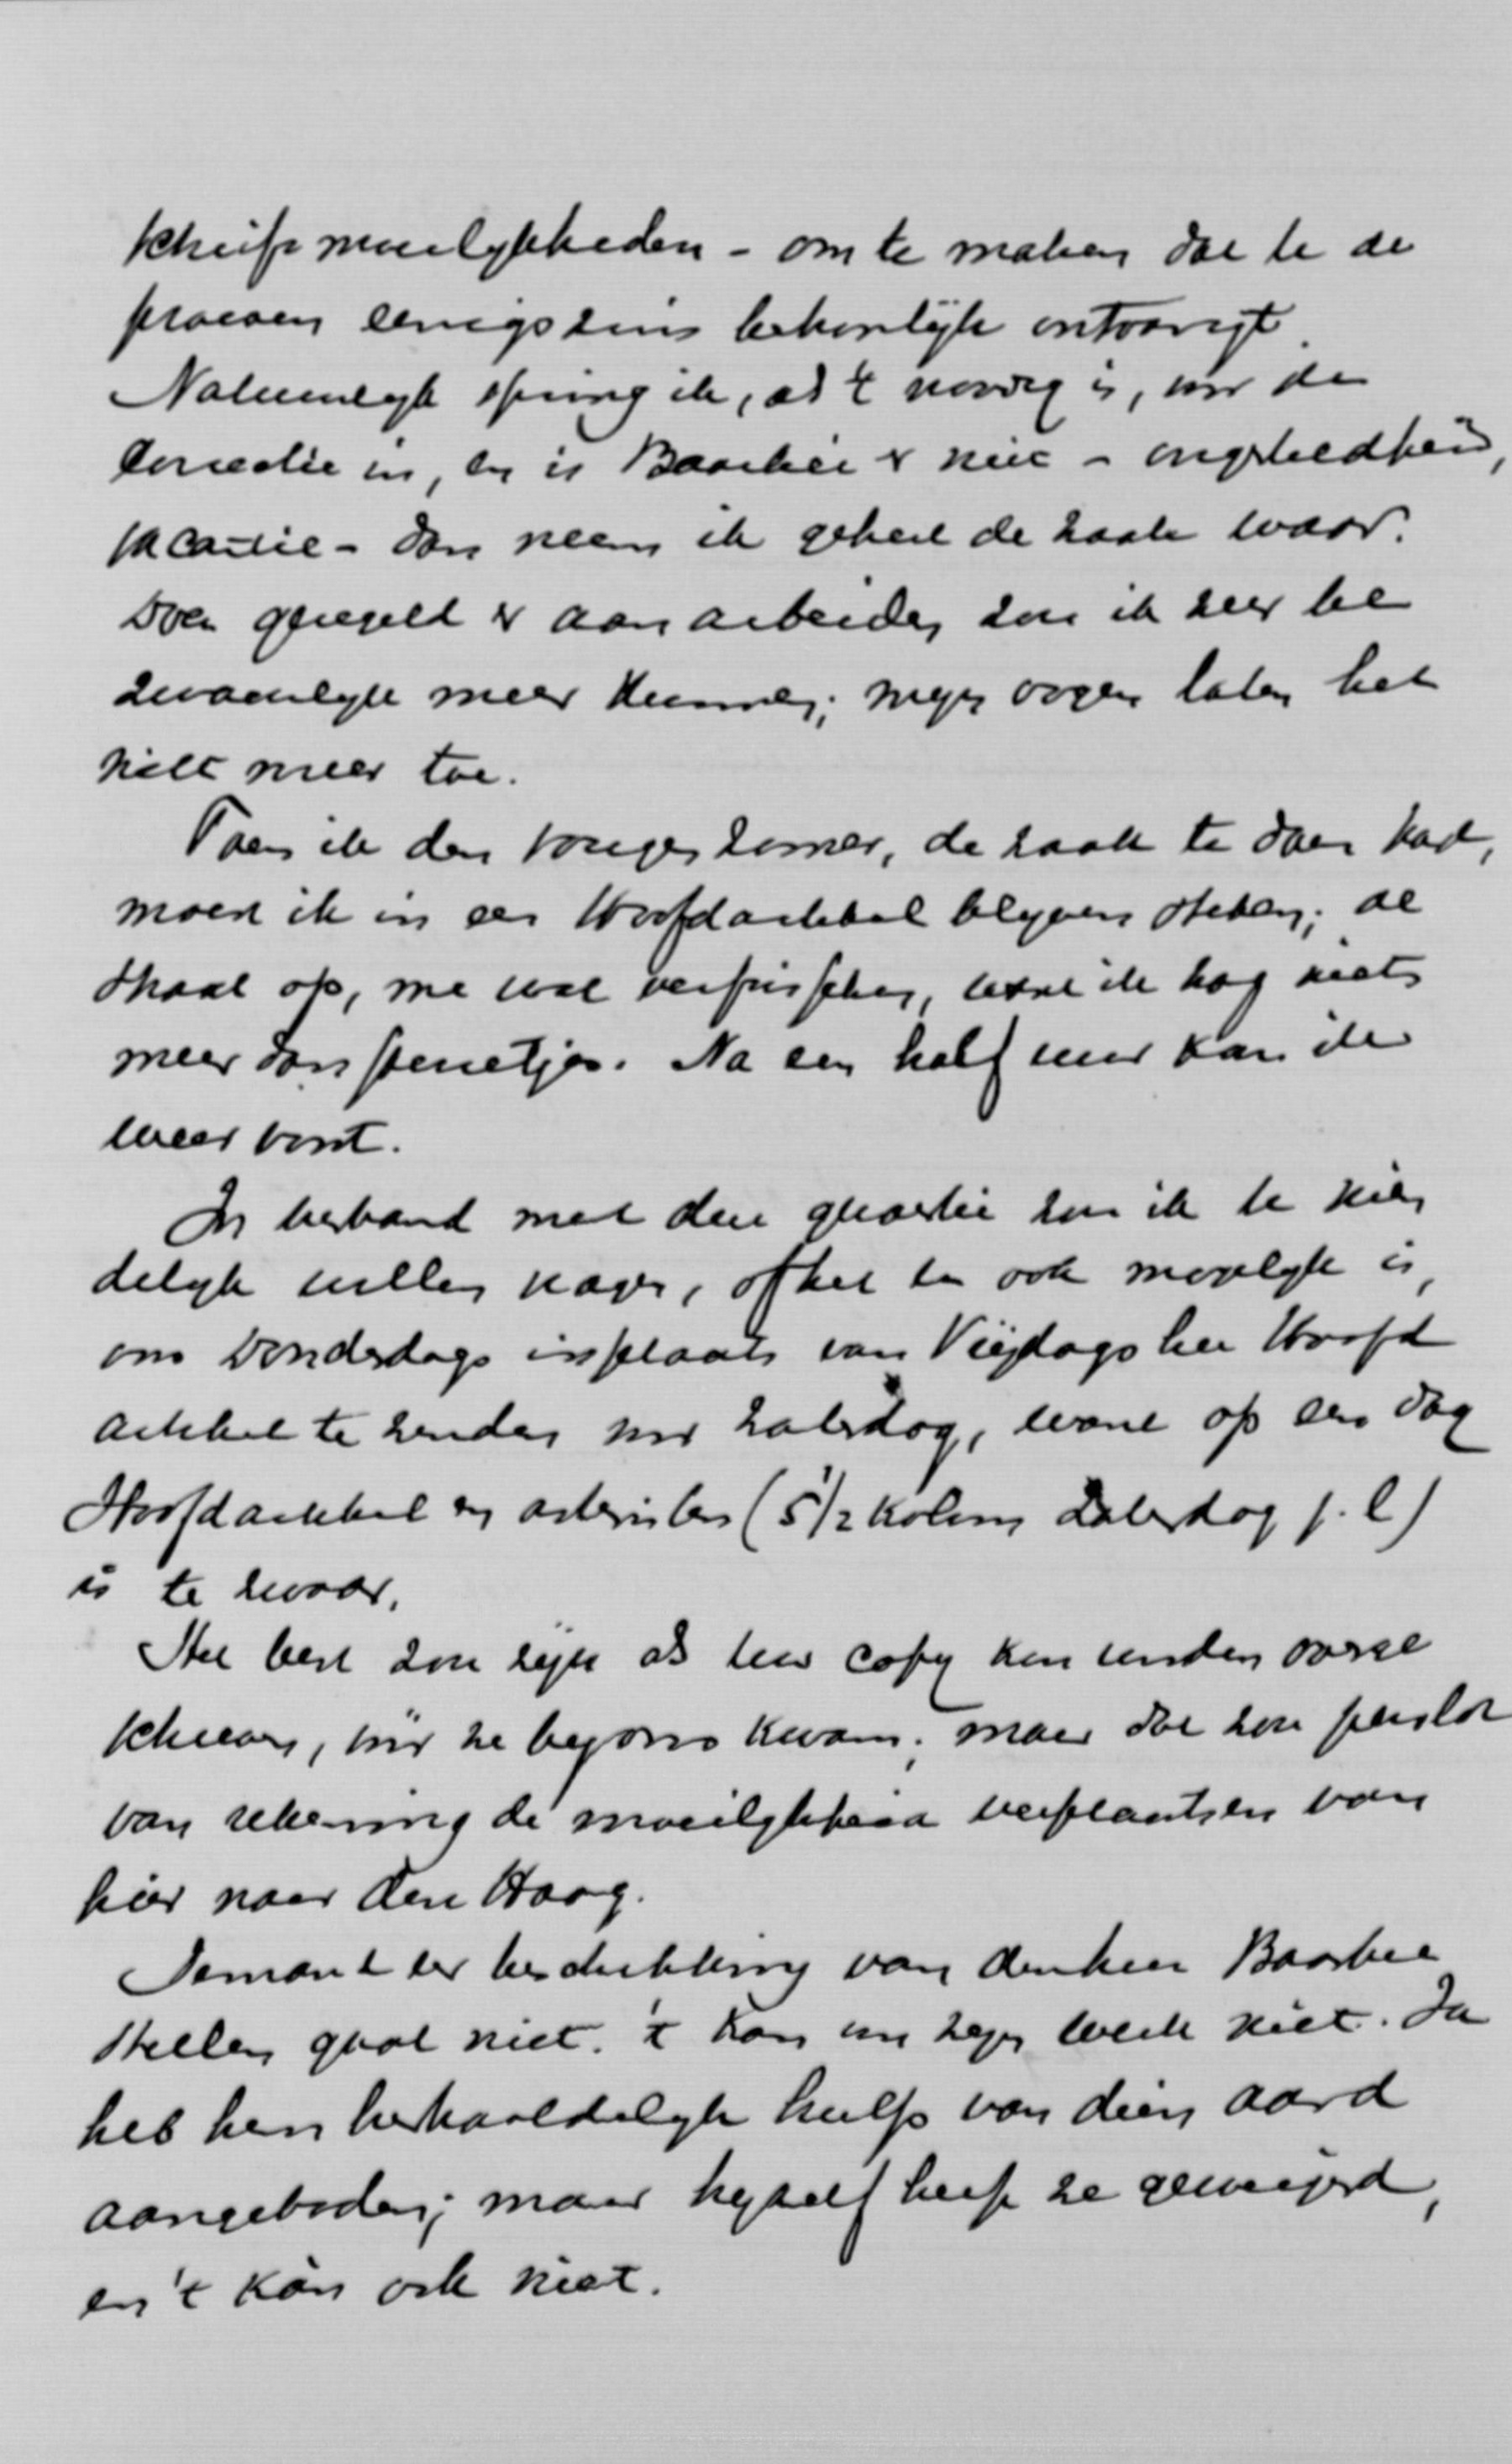 schrijfmoeilykheden - om te maken dat ze de
proeven eenigszins behoorlijk ontvangt.
Natuurlyk spring ik, als 't noodig is, voor de
correctie in, en is Baarbé er niet - ongesteldheid,
vacantie - dan neem ik geheel de zaak waar.
Doch geregeld er aan arbeiden zou ik zeer be
zwaarlyk meer kunnen; myn oogen laten het
niet meer toe.
Toen ik den vorigen zomer, de zaak te doen had,
moest ik in een Hoofdartikel blyven steken; al
straat op, me wat verfrisschen, want ik zag niets
meer dan Na een half uur kan ik
weer voort.
In verband met deze quaestie zou ik te vrien
delyk willen vragen, of het ook mogelyk is,
om Donderdags in plaats van Vrijdags het Hoofd
artikel te zenden voor Zaterdag, want op een dag
Hoofdartikel en asterisken (5 1/2 kolom Zaterdag j.l.)
is te zwaar.
Het best zou zijn als uw copy kon worden overge
schreven, vóór ze by ons kwam; maar dat zou per slot
van rekening de moeilykheid verplaatsen van
hier naar den Haag.
Iemand ter beschikking van den heer Baarbé
stellen gaat niet. 't kan in zyn werk niet. Ik
heb hem herhaaldelyk hulp van dien aard
aangeboden; maar hyzelf heeft ze geweigerd,
en 't kan ook niet.